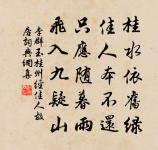 桂水依舊綠
佳人本不還
只應隨暮雨
飛入九疑山
李群玉桂州經佳人故
居詞典網